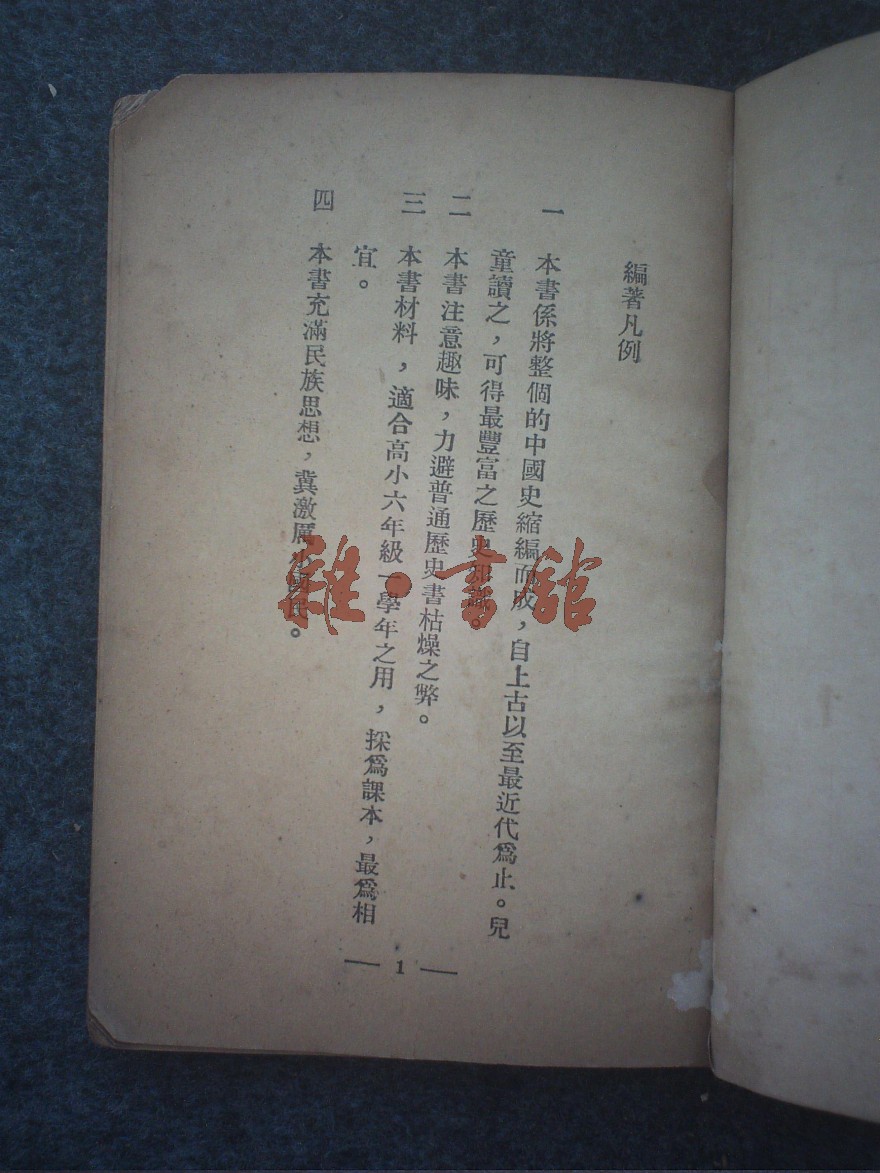 編著凡例
一 本書係將整個的中國史縮編而成，自上古以至最近代爲止。兒
童讀之，可得最豐富之歷史知識。
二 本書注意趣味，力避普通歷史書枯燥之弊。
三 本書材料，適合高小六年級一學年之用，採爲課本，最爲相
宜。
四 本書充滿民族思想，冀激厲小國民。
— 1 —
雜·書館